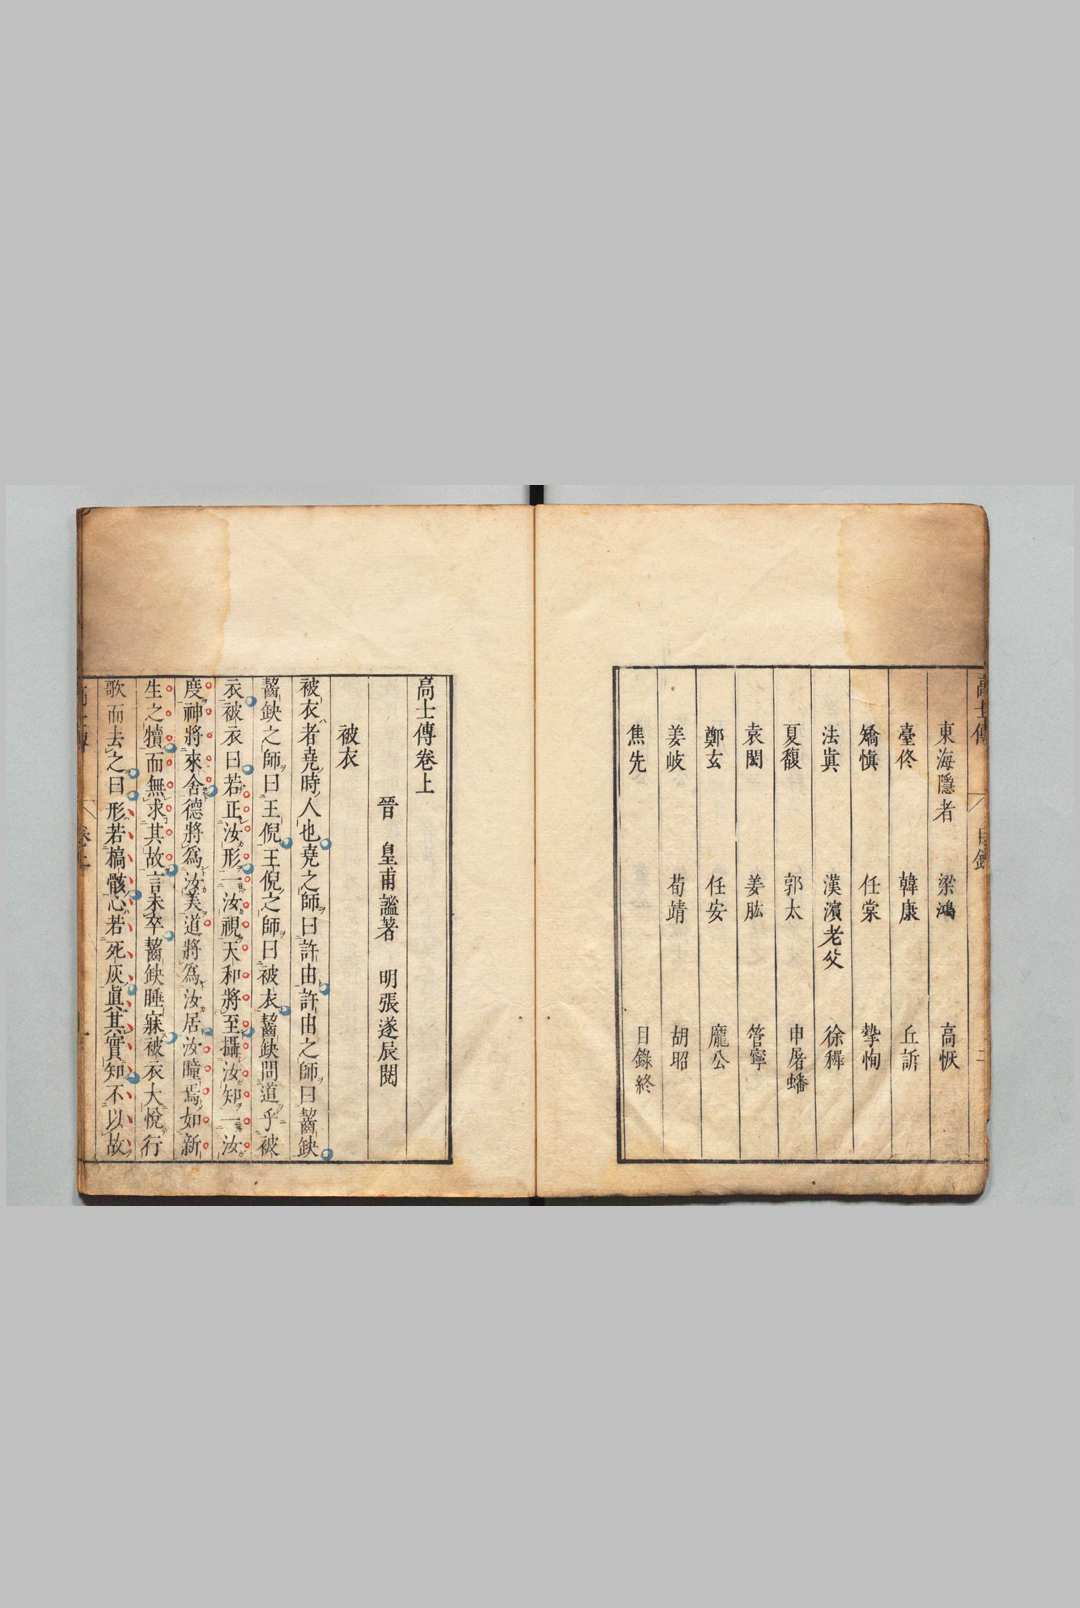 東海隱者 梁鴻 高恢
臺佟 韓康 丘訢
矯慎 任棠 摯恂
法眞 漢濱老父 徐穉
夏馥 郭太 申屠蟠
袁閎 姜肱 管寧
鄭玄 任安 龐公
姜岐 荀靖 胡昭
焦先 目錄終
高士傳卷上
晉 皇甫謐著 明張遂辰閱
被衣
被衣者堯時人也堯之師曰許由許由之師曰齧缺
齧缺之師曰王倪王倪之師曰被衣齧缺問道乎被
衣被衣曰若正汝形一汝視天和將至攝汝知一汝
度神將來舍德將爲汝美道將爲汝居汝瞳焉如新
生之犢而無求其故言未卒齧缺睡寐被衣大悅行
歌而去之曰形若槁骸心若死灰眞其實知不以故